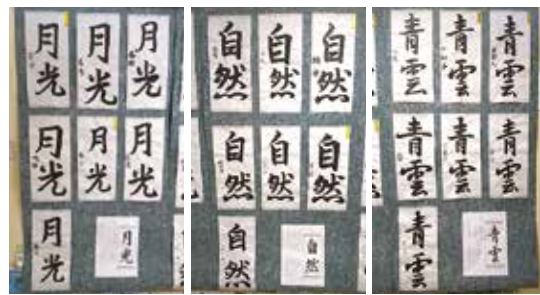 月光
月光
月光
月光
月光
月光
月光
月光
自然
自然
自然
自然
自然
自然
自然
自然
青雲
青雲
青雲
青雲
青雲
青雲
青雲
青雲